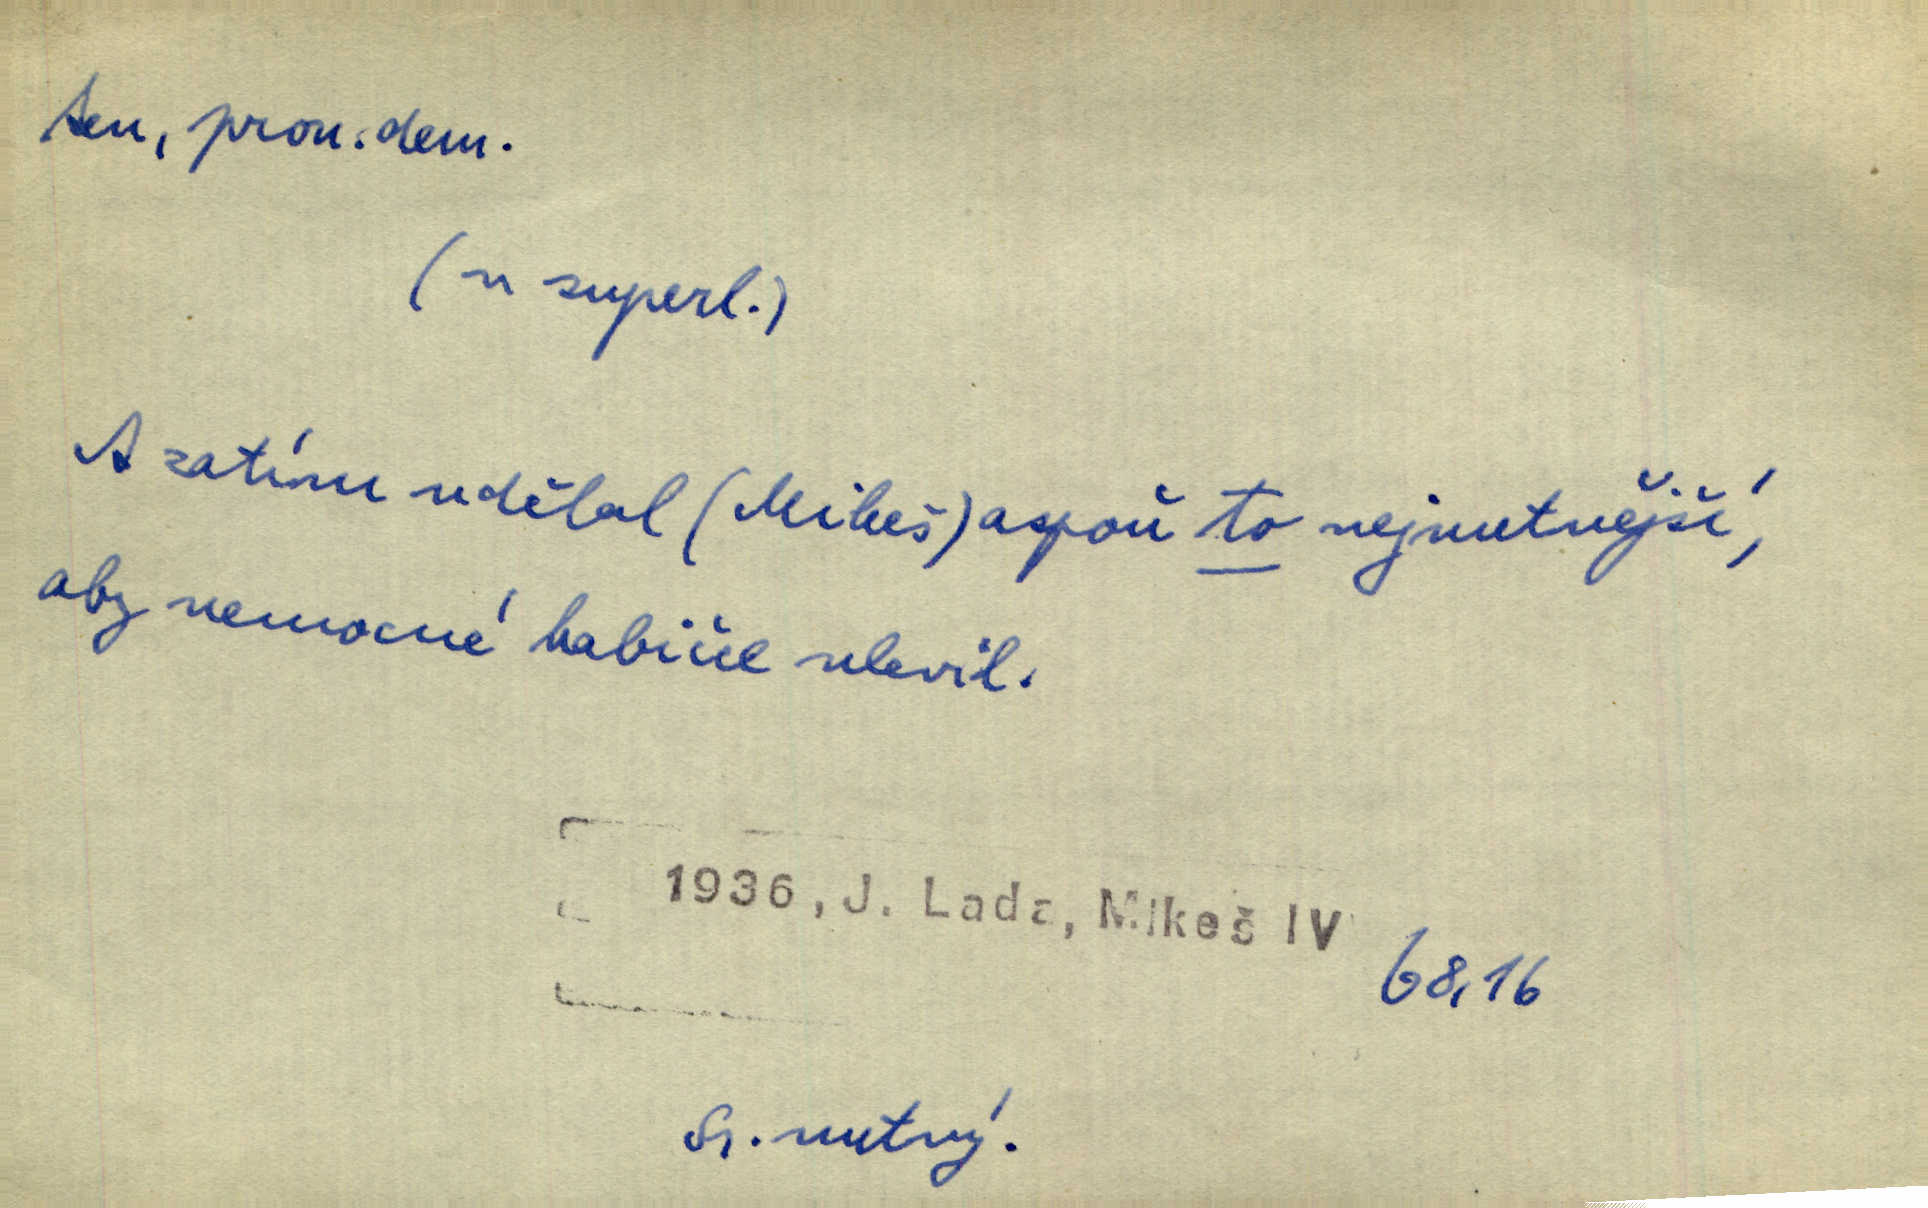 ten, pron. dem.
(u superl.)
A zatím udělal (Mikeš) aspoň to nejnutnější,
aby nemocné babičce ulevil.
1936, J. Lada, Mikeš IV
68,16
Sr. nutný.